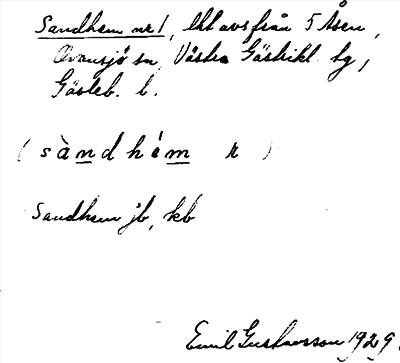 Sandhem nr 1, lht avs från 5 Åsen,
Ovansjö sn, Västra Gästrikl. tg,
Gävleb. l.
( s à n d h é m   r )
Sandhem jb, kb
Emil Gustavsson 1929.